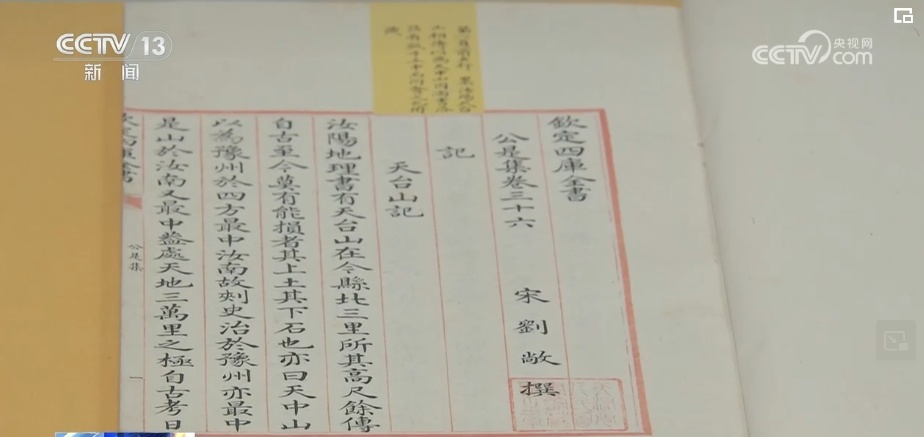 CCTV 13
新闻
央视网
CCTV.com
欽定四庫全書
公是集卷三十六
宋劉敞撰
記
天台山記
汝陽地理書有天台山在今縣北三里所其髙尺餘傳
自古至今莫有能損者其上土其下石也亦曰天中山
以為豫州於四方最中汝南故刺史治於豫州亦最中
是山於汝南又最中葢處天地三萬里之極自古考日
公是集
一